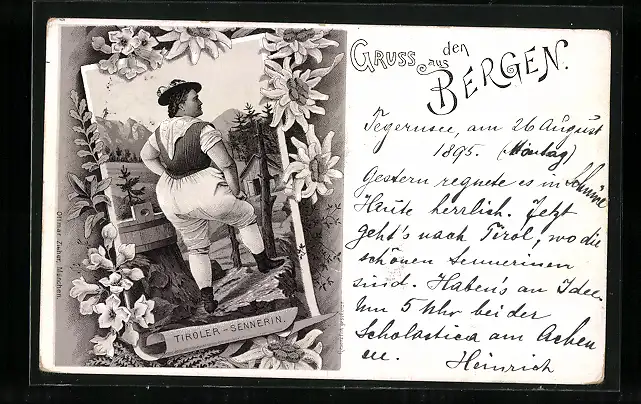 Gruss aus den
Bergen.
Tegernsee, am 26 August
1895. (Montag)
Gestern regnete es in
Heute herrlich. Jetzt
geht's nach Tirol, wo die
schönen Sennerinen
sind. Haben's an Idee.
Um 5 Uhr bei der
Scholastica am Achen
see.
Heinrich
TIROLER-SENNERIN.
Ottmar Zieher, München.